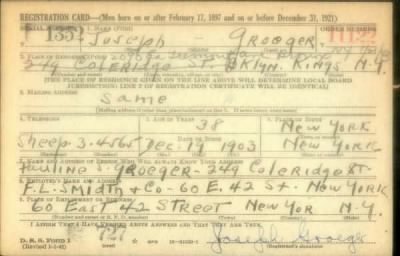 REGISTRATION CARD—(Men born on or after February 17, 1897 and on or before December 31, 1921)
SERIAL NUMBER 1. NAME (Print) ORDER NUMBER
Joseph - Groeger
2. PLACE OF RESIDENCE (Print)
249 Coleridge St BKLYN. Kings N.Y.
(THE PLACE OF RESIDENCE GIVEN ON THE LINE ABOVE WILL DETERMINE LOCAL BOARD
JURISDICTION; LINE 2 OF REGISTRATION CERTIFICATE WILL BE IDENTICAL)
3. MAILING ADDRESS
Same
4. TELEPHONE 5. AGE IN YEARS 6. PLACE OF BIRTH
38 New York
DATE OF BIRTH
Sheep 3-4565 Dec. 19 1903 New York
7. NAME AND ADDRESS OF PERSON WHO WILL ALWAYS KNOW YOUR ADDRESS
Pauline S. Groeger - 249 Coleridge St.
8. EMPLOYER'S NAME AND ADDRESS
F.L. Smidth & Co - 60 E. 42 St. New York
9. PLACE OF EMPLOYMENT OR BUSINESS
60 East 42 Street New York N.Y.
I AFFIRM THAT I HAVE VERIFIED ABOVE ANSWERS AND THAT THEY ARE TRUE.
D. S. S. Form 1
Joseph Groeger